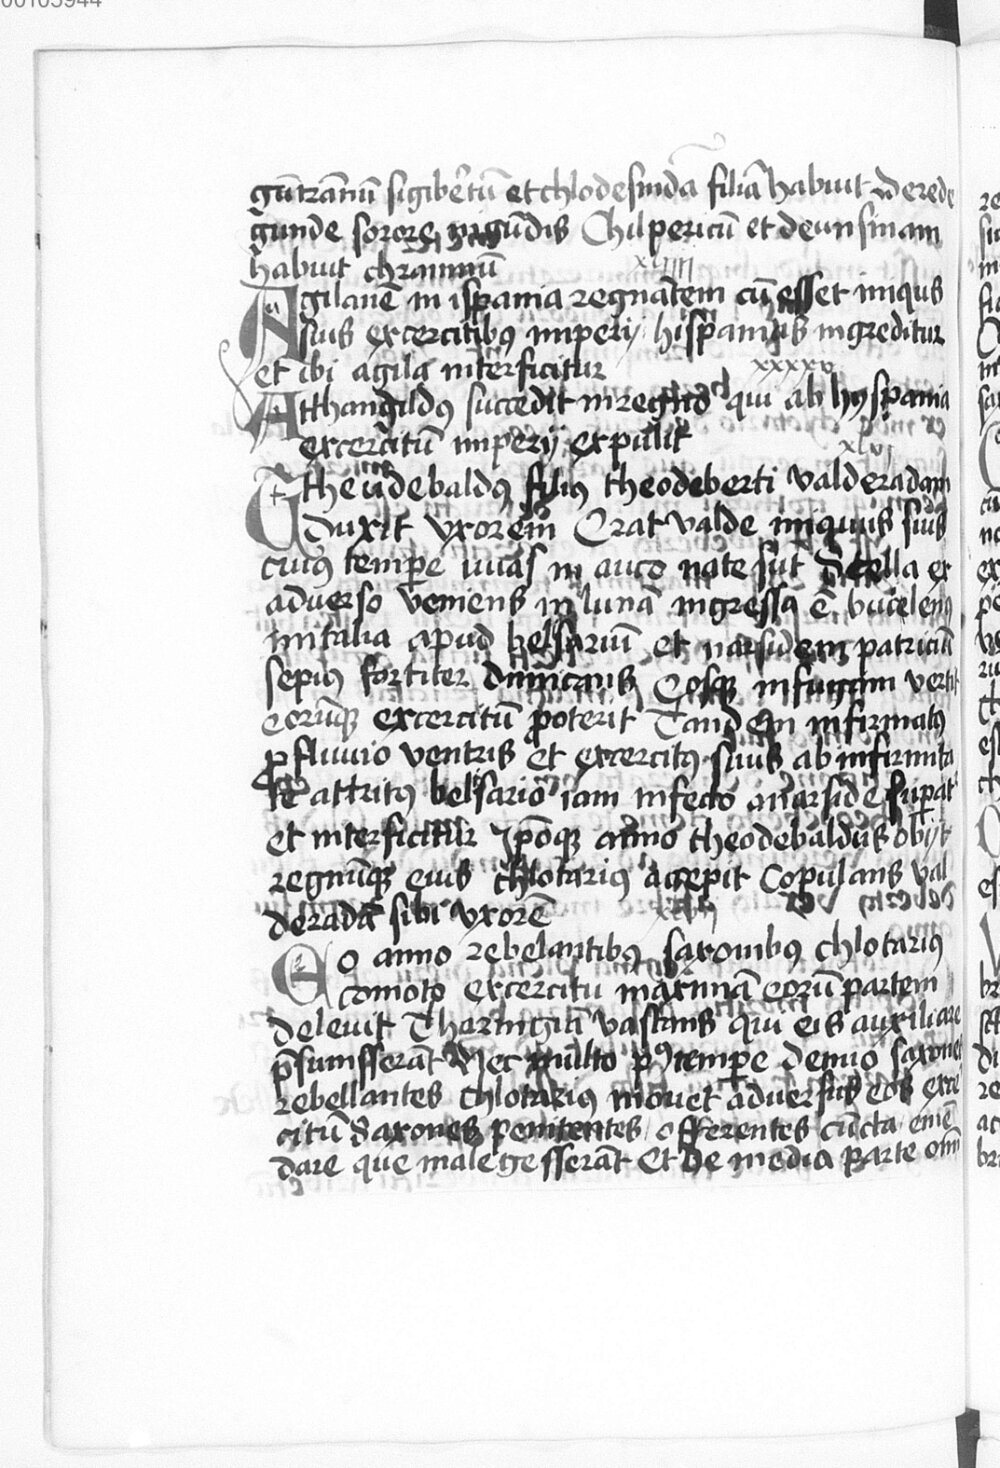 00105944
gūtrānū sigibertū et chlodesindā filiā habuit de rede
gunde sorore ingūdis Chilpericū et de unsinam
habuit chrannū xliiii
Agilanē in ispania regnātem cū esset iniqus
suis excercitibus imperij hispanias ingreditur
et ibi agila interficitur xxxxv
Athangildus succedit in regno qui ab hyspania
excercitū imperij expulit xlvi
Theudebaldus filius theodeberti valderadam
duxit vxorem Erat valde iniquus suis
cuius tempore uuas in auco nate sūt stella ex
adverso veniens in lunā ingressa ē bucelenus
in italia apud belsariū et narsidem patriciū
sepius fortiter dimicans Eosque in fugam vertit
eorūque excercitū proterit Tandem infirmatus
profluuio ventris et excercitus suus ab infirmita
te attritus belsario iam infecto a narside superat
et interficitur ipōque anno theodebaldus obijt
regnūque eius chlotarius accepit Copulans val
deradā sibi vxorē xlvii
Eo anno rebelantibus saxonibus chlotarius
comoto excercitu maximā eorū partem
deleuit Tharingiā vastans qui eis auxiliare
presumsserāt Nec multo post tempore denuo saxones
rebellantes chlotarius mouet adversus eos exce
citū Saxones penitentes offerentes cūcta emē
dare que male gesserāt Et de media parte om̄